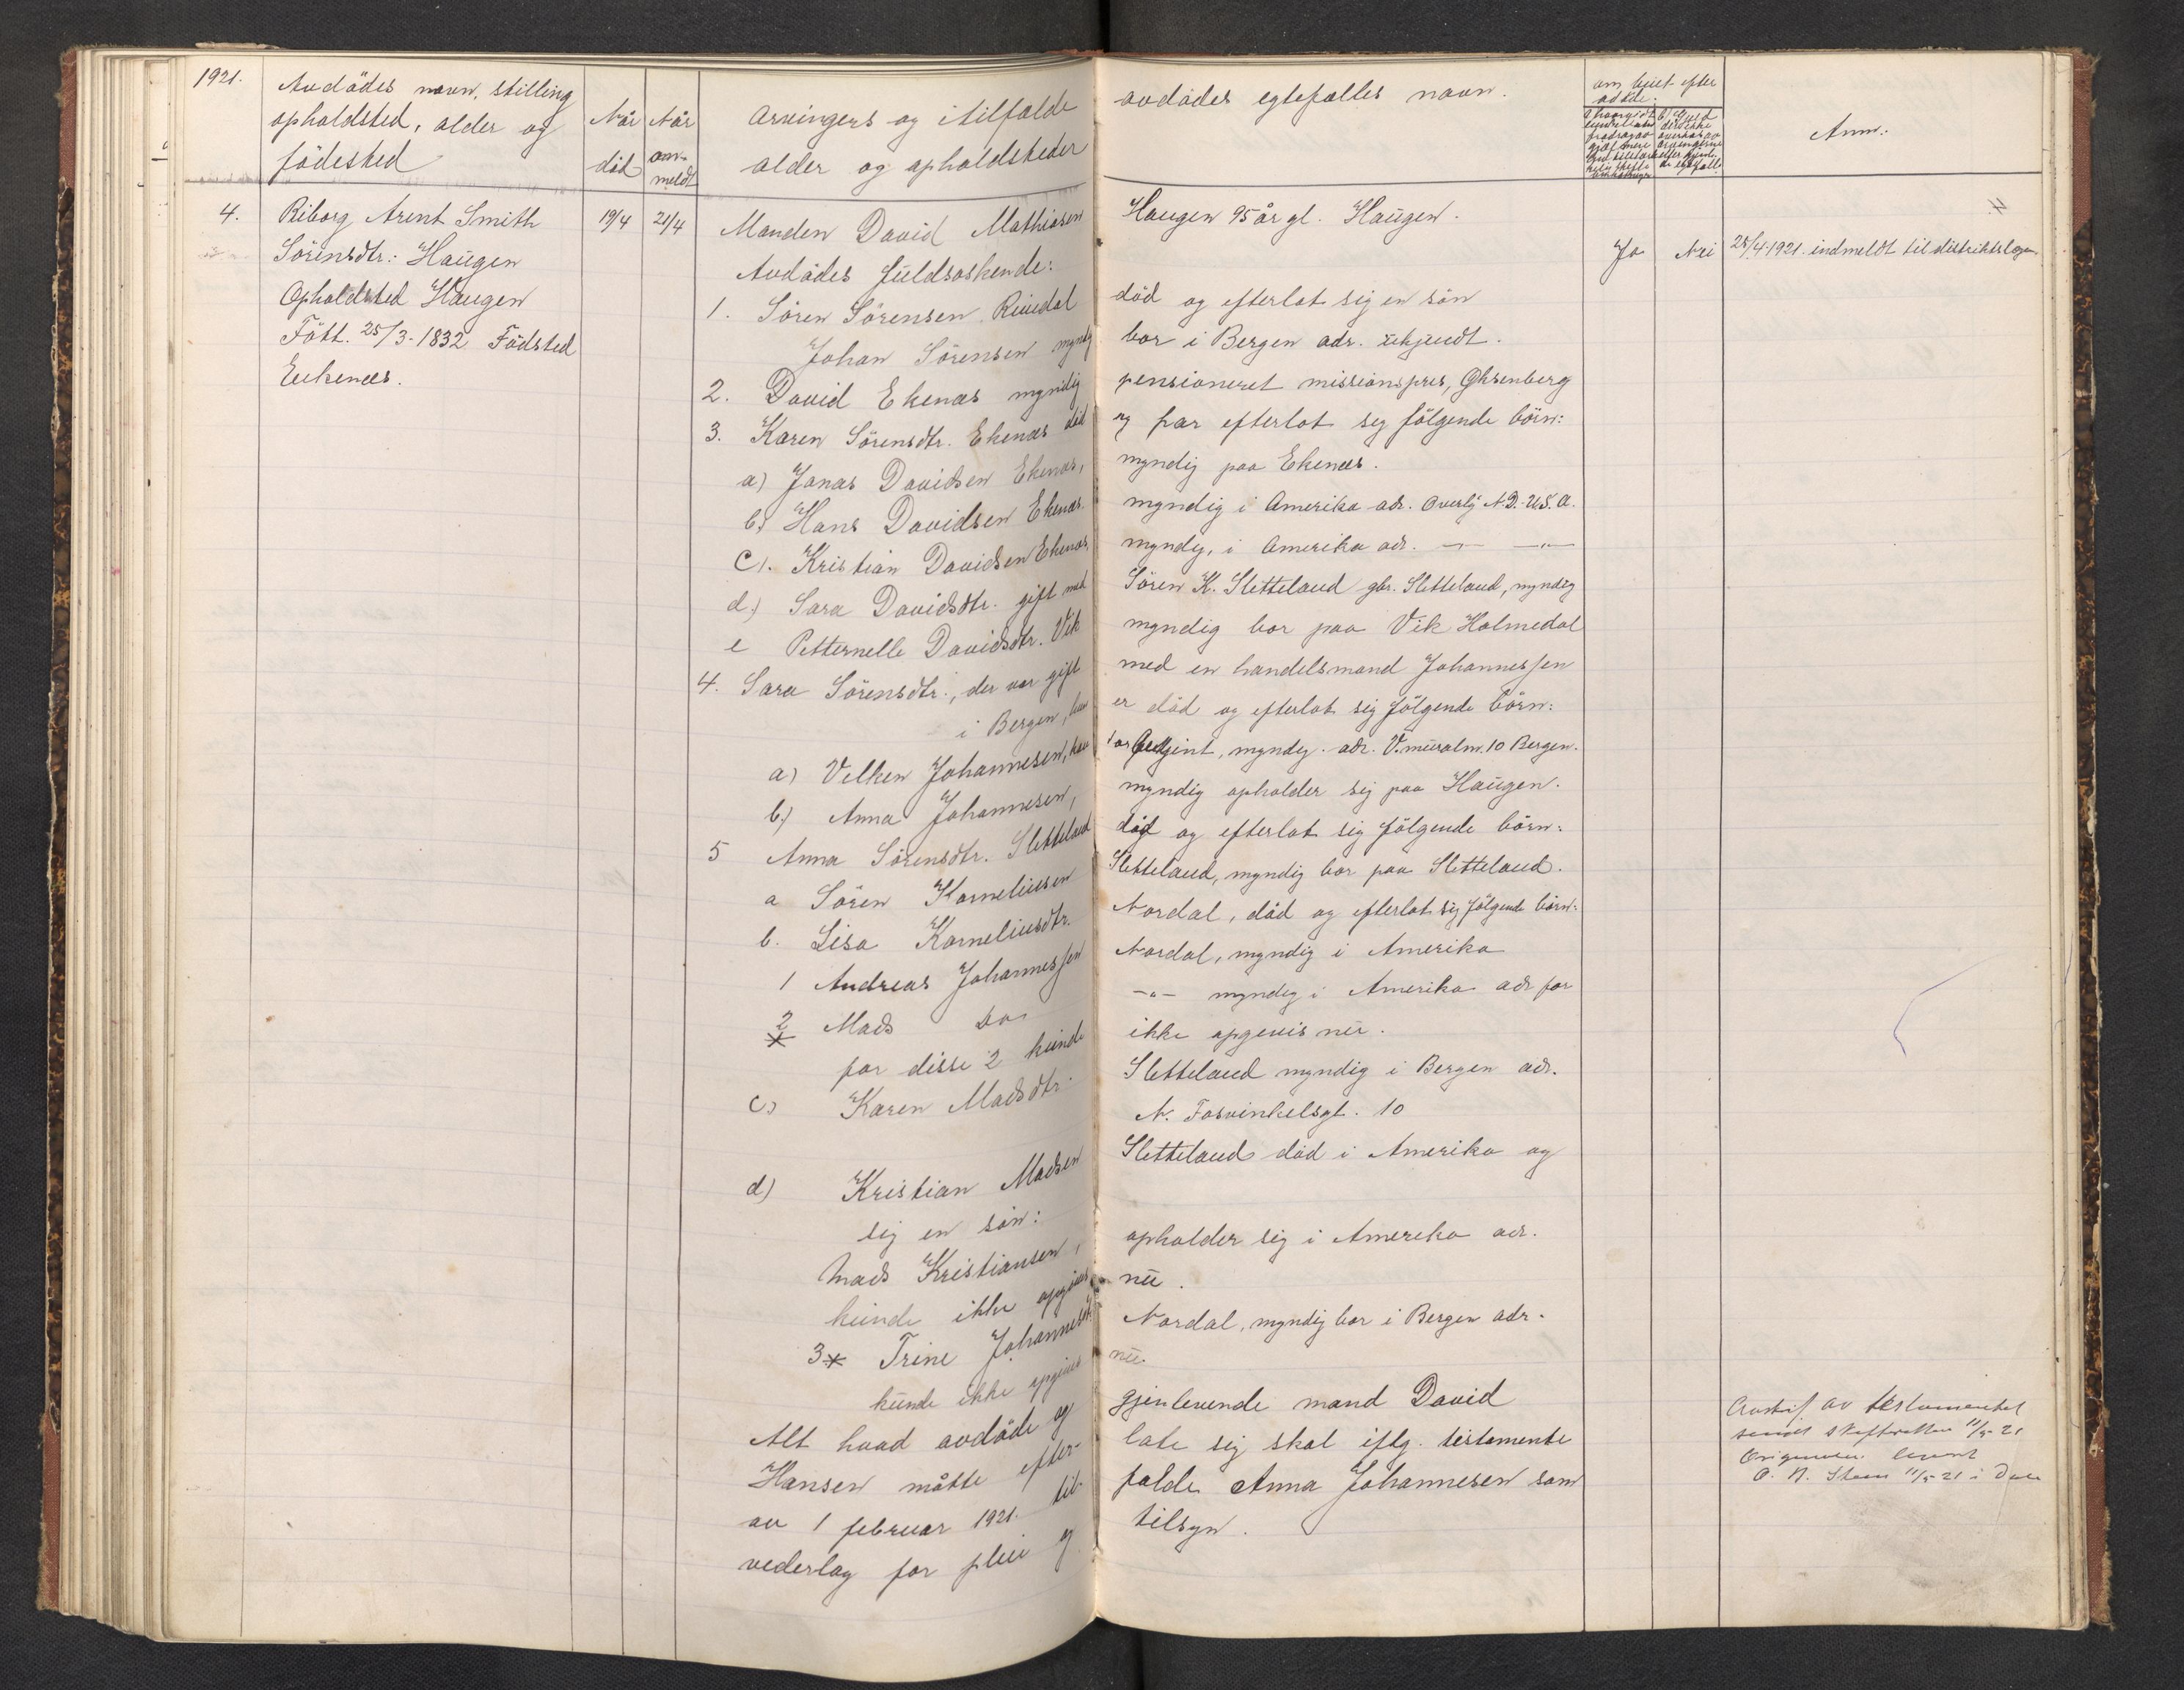 1921.
Avdödes navn, stilling
opholdsted, alder og
födested
Når
död
Når
an-
meldt
Arvingers og i tilfælde avdödes egtefælles navn.
alder og opholdsteder
om buet efter
avdöde:
Anm.
4.
Riborg Arent Smith
Sörensdtr.: Haugen
Opholdsted Haugen
Fött. 25/3-1832 Födsted
Eekenæs.
19/4
21/4
Manden David Mathiasen Haugen 95 år gl. Haugen.
Avdödes fuldsöskende:
1. Sören Sörensen Rivedal död og efterlot sig en sön
Johan Sörensen myndig bor i Bergen adr. ukjendt.
2. David Ekenæs myndig pensioneret missionspres,
3. Karen Sörensdtr. Ekenæs död og har efterlot seg fölgende börn:
a) Jonas Davidsen Ekenæs, myndig paa Ekenæs.
b) Hans Davidsen Ekenæs. myndig i Amerika adr. Overly N.D. U.S.A.
c). Kristian Davidsen Ekenæs, myndig, i Amerika adr. -"- -"-
d.) Sara Davidsdtr. gift med Sören K. Sletteland gbr. Sletteland, myndig
e Petternelle Davidsdtr. Vik myndig bor paa Vik Holmedal
4. Sara Sörensdtr., der var gift med en handelsmand Johannessen
i Bergen, hun er död og efterlot sig fölgende börn:
a) Velken Johannesen, har myndig. adr. V. muralm. 10 Bergen.
b.) Anna Johannesen, myndig opholder sig paa Haugen.
5 Anna Sörensdtr. Sletteland död og efterlot sig fölgende börn:
a Sören Korneliusen Sletteland, myndig bor paa Sletteland.
b. Lisa Korneliusdtr. Nordal, död og efterlot sig fölgende börn:
1 Andreas Johannessen Nordal, myndig i Amerika
2 Mads do -"- myndig i Amerika adr for
* for disse 2 kunde ikke opgivis nu.
c) Karen Madsdtr. Sletteland myndig i Bergen adr.
N. Fosvinkelsgt. 10
d) Kristian Madsen Sletteland död i Amerika og
sig en sön:
Mads Kristiansen, opholder sig i Amereka adr.
kunde ikke opgives nu.
3* Trine Johannesdt. Nordal, myndig bor i Bergen adr.
kunde ikke opgives nu.
Alt hvad avdöde og gjenlevende mand David
Hansen måtte efter- late sig skal iflg. testamente
av 1 februar 1921. til- falde Anna Johannesen som
vederlag for pleie og tilsyn.
Ja
Nei
25/4 1921. indmeldt til distriktslægen.
4.
Avskrif av testamentet
sendt skifteretten 11/5-21
11/5-21 i Dale